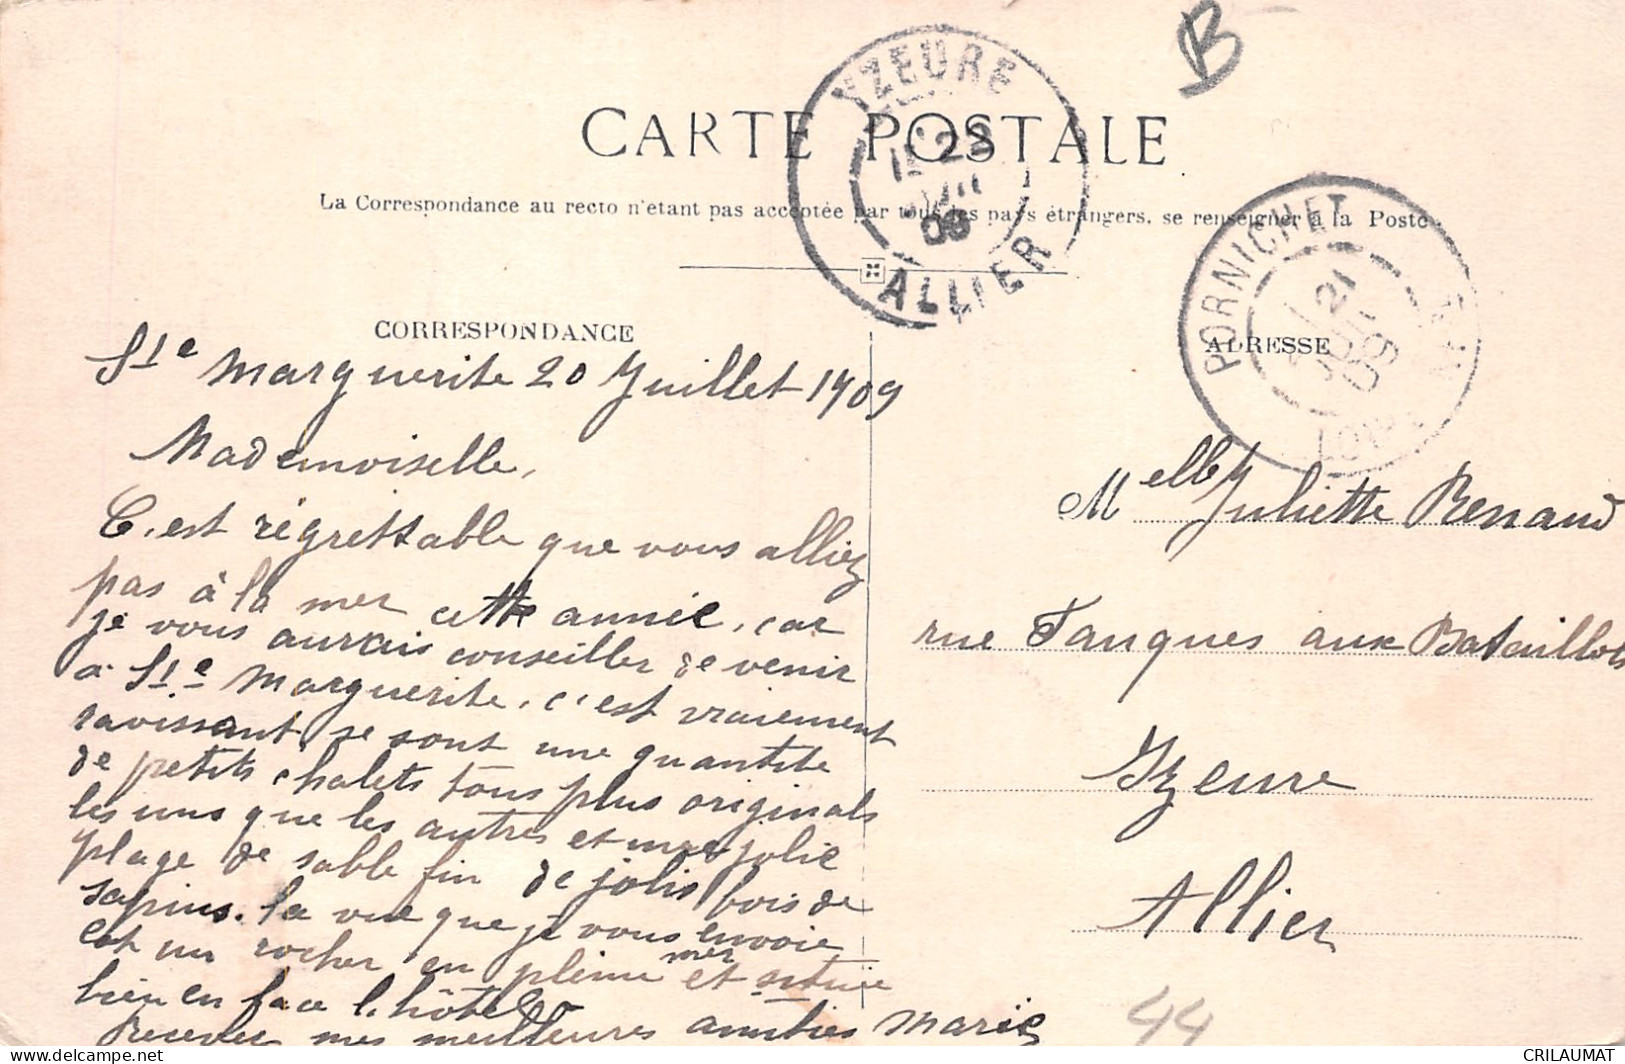 B
CARTE POSTALE
YZEURE
22
09
ALLIER
La Correspondance au recto n'étant pas acceptée par tous les pays étrangers, se renseigner à la Poste
PORNICHET
21
09
LOIRE
CORRESPONDANCE
ADRESSE
Ste Marguerite 20 Juillet 1909
Mademoiselle,
C'est régrettable que vous alliez
pas à la mer cette année, car
je vous aurais conseiller de venir
à Ste Marguerite, c'est vraiement
ravissant, se sont une quantité
de petits chalets tous plus originals
les uns que les autres et une jolie
plage de sable fin de jolis bois de
sapins. la vue que je vous envoie
est un rocher en pleine mer et située
bien en face l'hôtel
Recevez mes meilleures amitiés Marie
Melle Juliette Renaud
rue Tanques aux Bataillots
Yzeure
Allier
44
CRILAUMAT